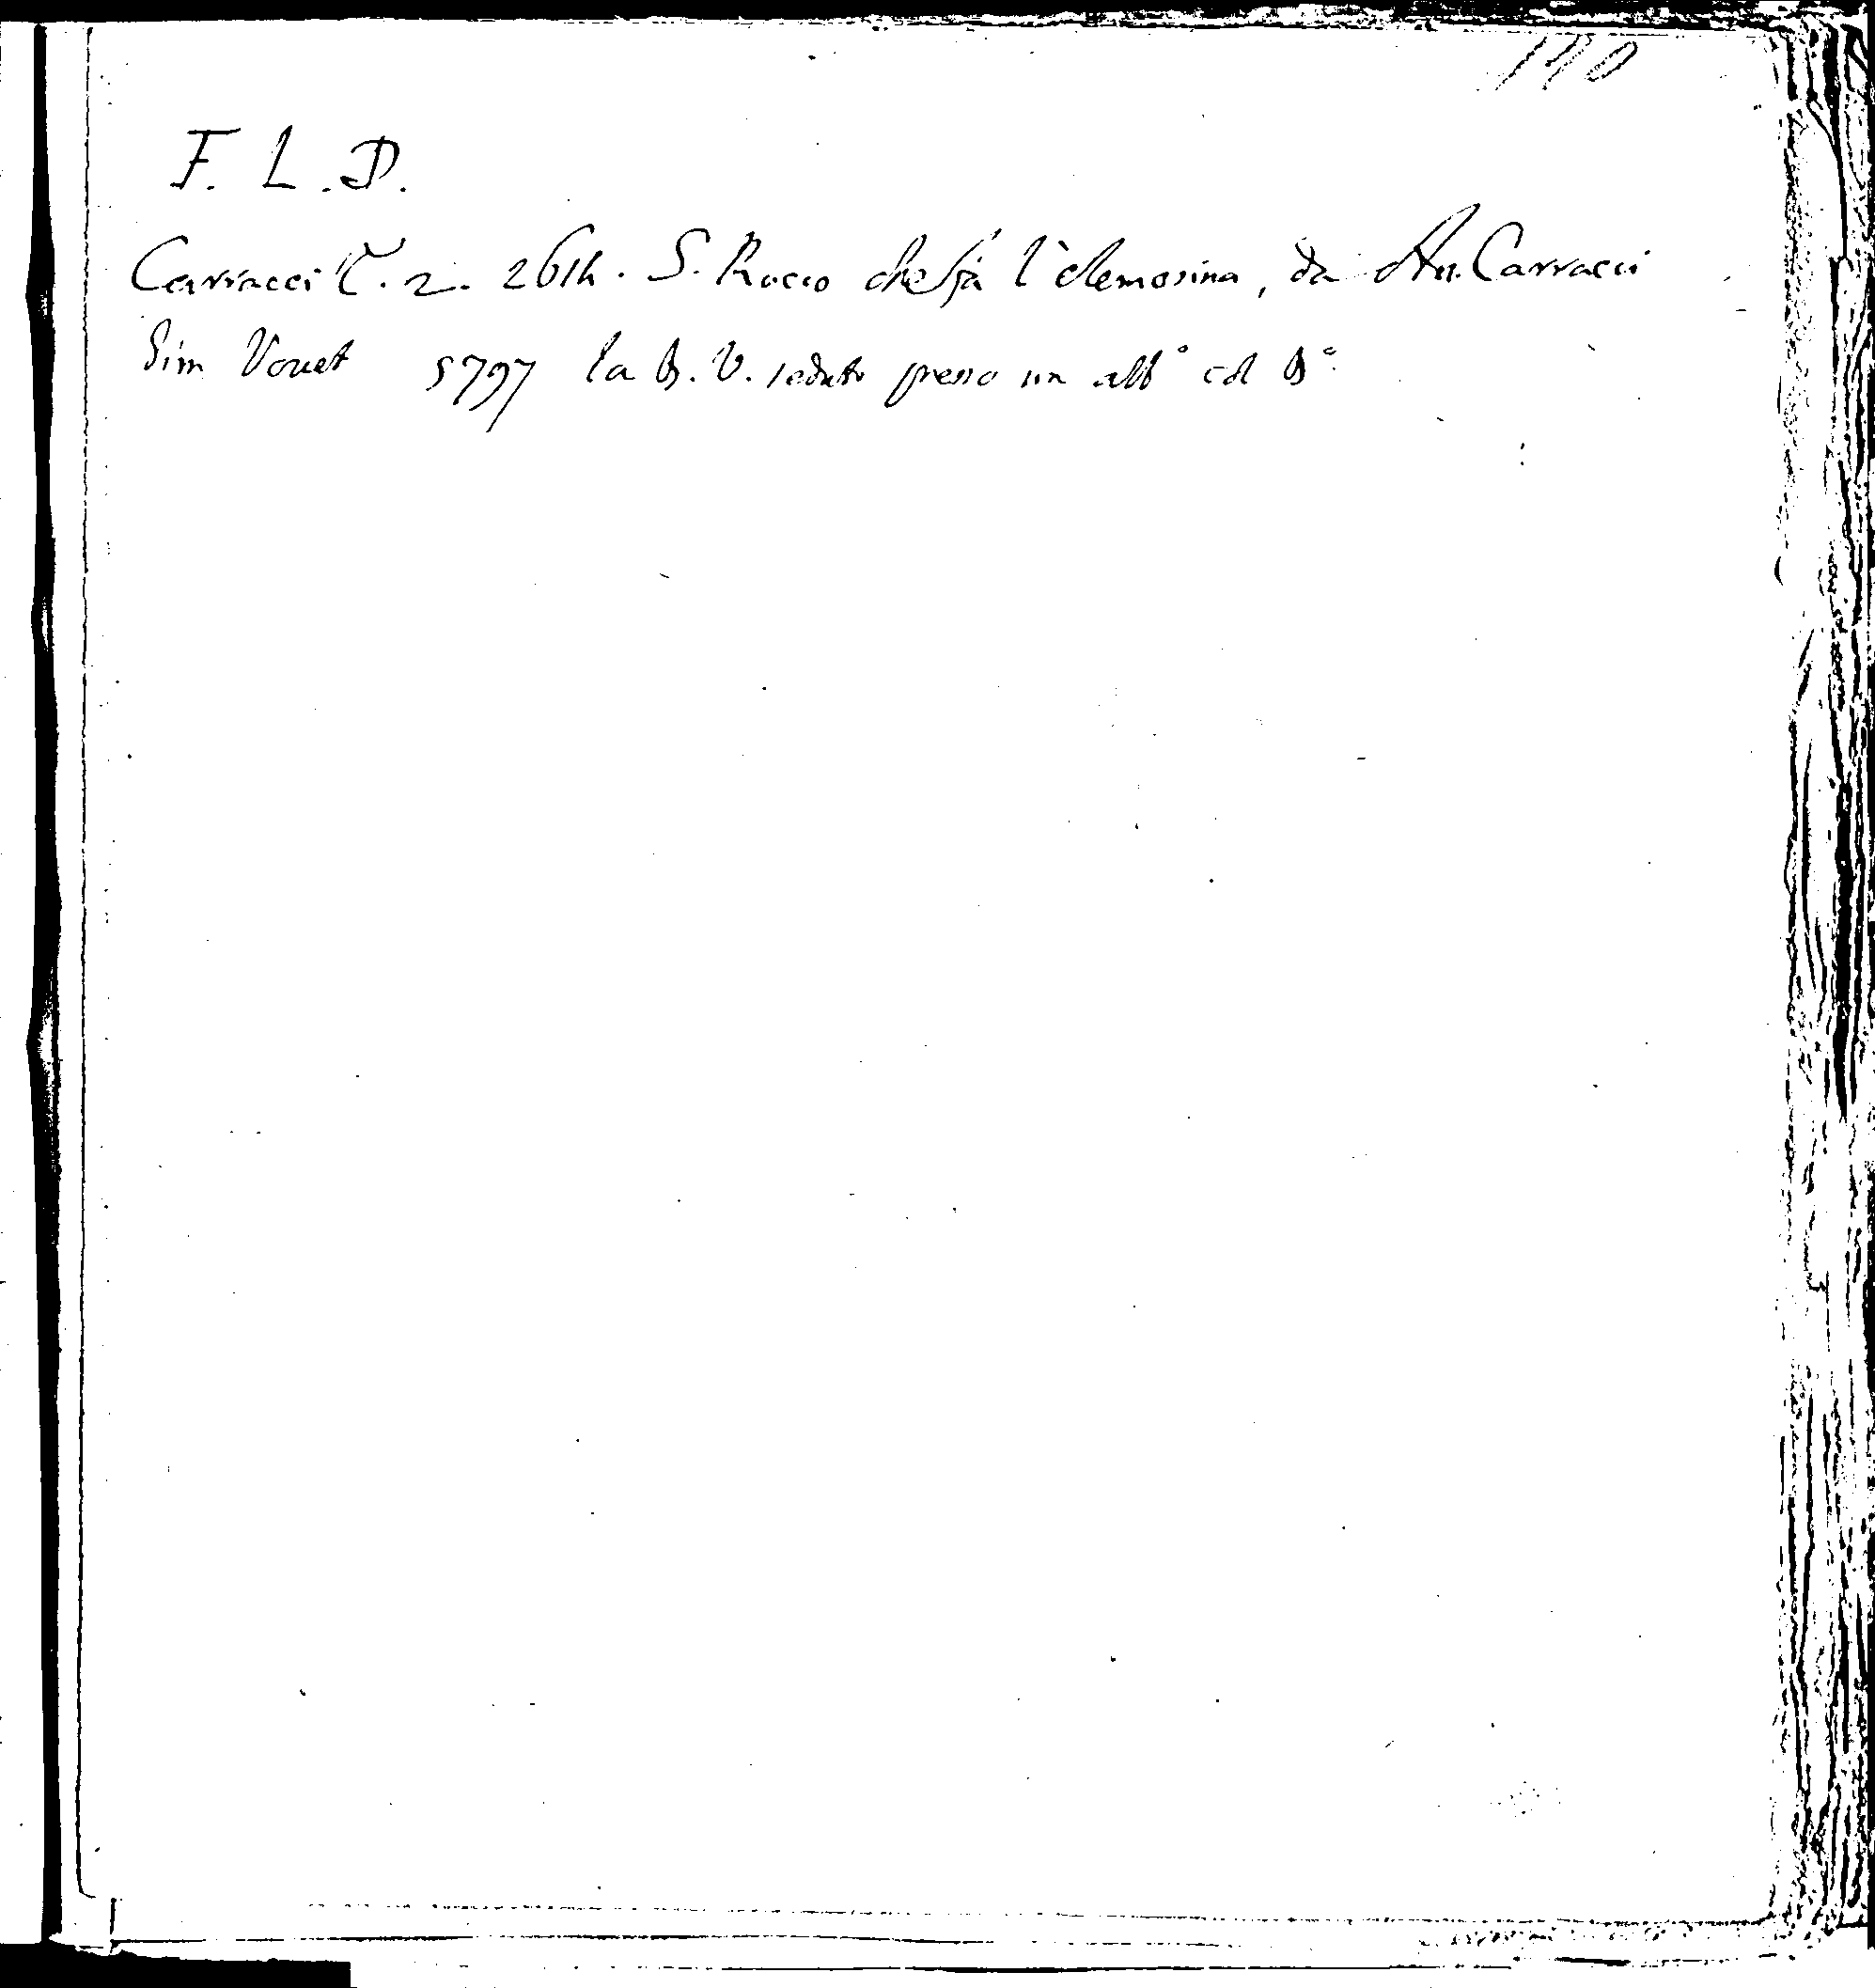 190
F. L. D.
Carracci T. 2. 26 S. Rocco che fà l'elemosina, da An. Carracci
Sim Vouet 5797 la B. V. seduta presso un alb° col B°